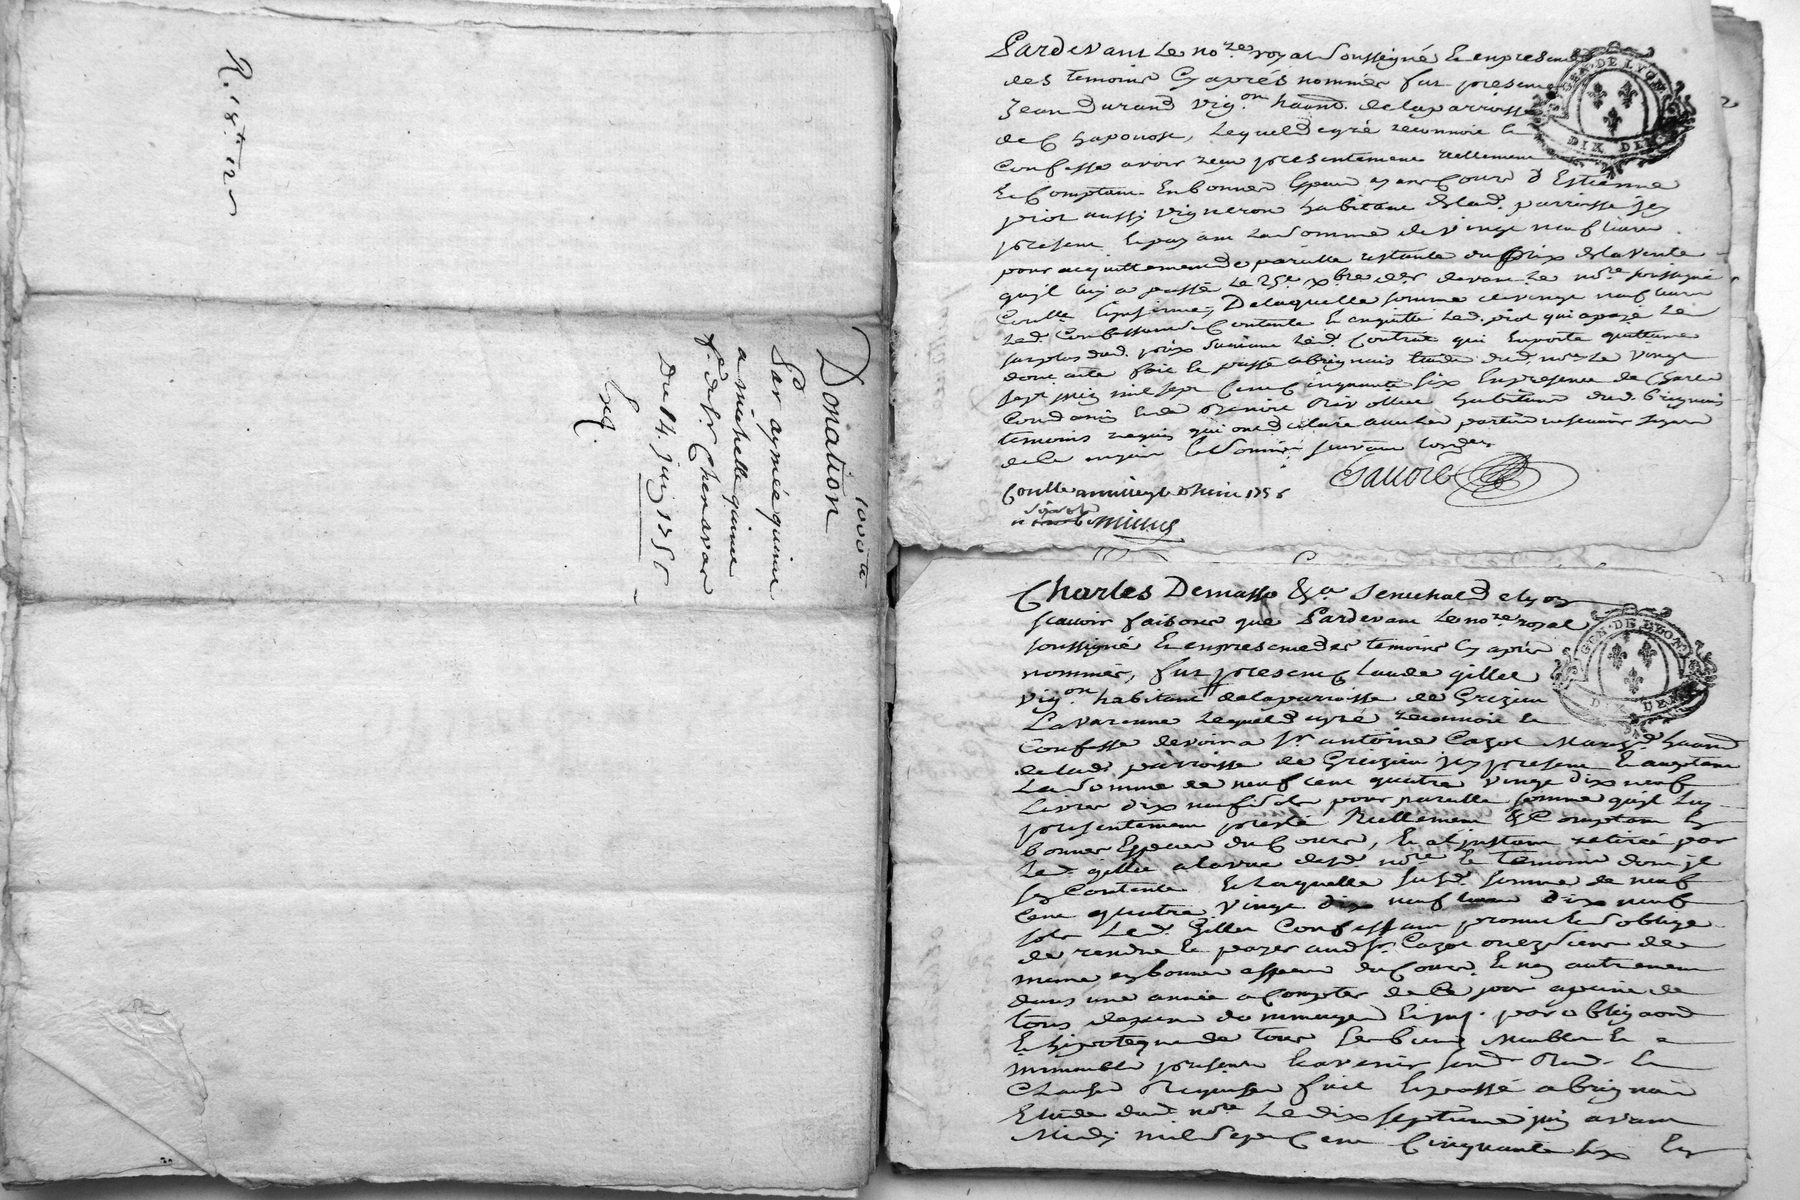 R. 18.tt 12
1000 tt
Donation
Par aymée guinne
a michelle guinne
f. de Sr. Chenavar
Du 14. juin 1756
Exq.
Pardevant Le no.re royal soussigné & en presence
des temoins Cy aprés nommés fut present
Jean durand vig.on haant. de la parroisse
de Chaponost, Lequel de gré reconnoit &
Confesse avoir receu presentement reellement
& Comptant En bonnes Especes ayant Cours d'Estienne
priot aussi vigneron habitant de lad. parroisse jcy
present & payant La Somme de vingt neuf livres
pour acquittement de pareille restante du prix de la vente
qu'jl luy a passé Le 25e. xbre der. devant Le no.re soussigné
De laquelle somme de vingt neuf livres
Led. Confessant Contente En quitte Led. priot qui a payé Le
surplus dud. prix suivant Led. Contrat qui En porte quittance
dont acte fait & passé a brignais Etude dud. no.re Le vingt
sept juin mil sept Cent Cinquante six En presence de Charles
habitants dud. brignais
temoins requis qui ont declaré avec les parties ne sçavoir signer
de ce enquis & Sommés suivant L'ordce
Conllé a le juin 1756
Charles Demasso &.a Senechal de Lyon
scavoir faisons que Pardevant Le no.re royal
soussigné & en presence des temoins Cy aprés
nommés, fut present Claude gillet
vig.on habitant de la parroisse de Grizieu
La varenne Lequel de gré reconnoit &
Confesse devoir a Sr. antoine Cazot March.d haant
de lad. parroisse de Grezieu jcy present & acceptant
La Somme de neuf cent quatre vingt dix neuf
Livres dix neuf sols pour pareille somme qu'jl luy a
presentement presté Reellement & Comptant En
bonnes Especes du Cours, & a l'jnstant retirée par
Led. gillet a la vue dud. no.re & temoins dont jl
se Contente & Laquelle susd. somme de neuf
Cent quatre vingt dix neuf livres dix neuf
sols Led. Gillet Confessant promet & s'oblige
de rendre & payer aud. Sr. Cazot ou es siens de
meme En bonnes especes du Cours & non autrement
dans une année a Compter de Ce jour a peine de
tous depens dommages & jnt. par obligaon
& hipoteque de tous Ses biens meubles &
immeubles presents & avenir &
Clauses Requises fait & passé a brignais
Etude dud. no.re Le dix septieme juin avant
Midy mil sept Cent Cinquante six En
GEN. DE LYON
DIX DEN
GEN. DE LYON
DIX DEN